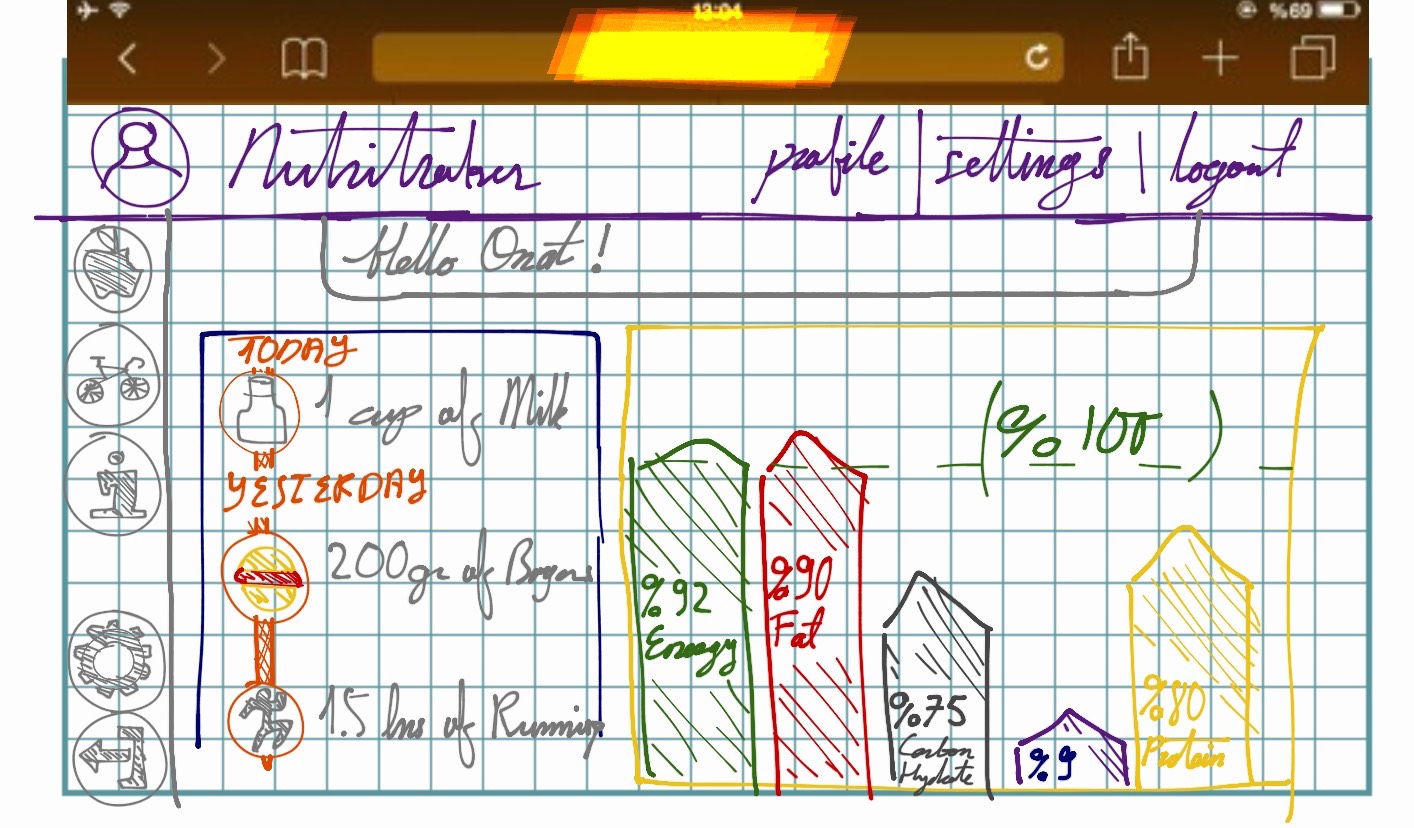 13:04
%69
Nutritracker
profile | settings | logout
Hello Onat!
TODAY
1 cup of Milk
YESTERDAY
200gr of
15 hrs of Running
(%100)
%92
Energy
%90
Fat
%75
Carbon
Hydrate
%9
%80
Protein